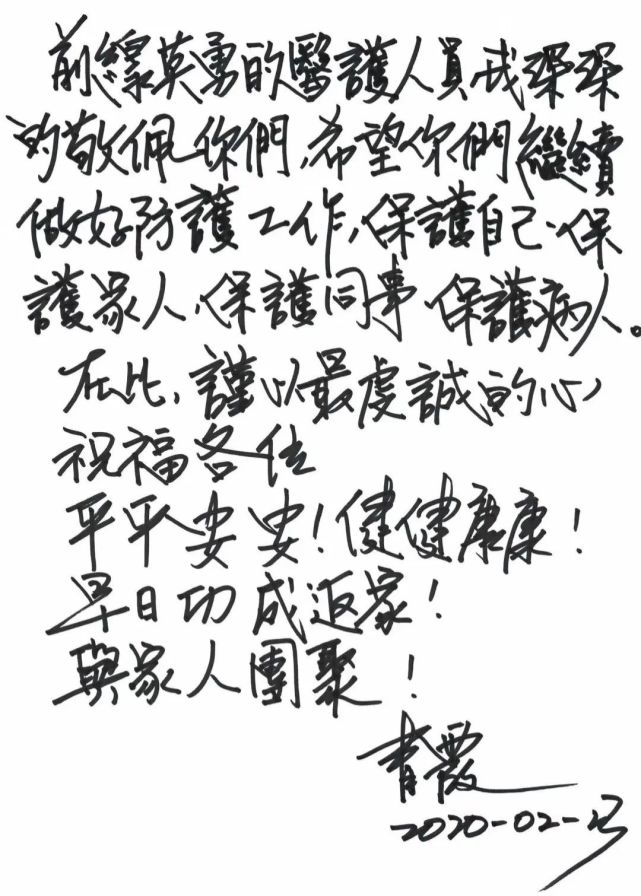 前線英勇的醫護人員我深深
的敬佩你們,希望你們繼續
做好防護工作,保護自己、保
護家人、保護同事、保護病人。
在此,謹以最虔誠的心
祝福各位
平平安安!健健康康!
早日功成返家!
與家人團聚!
青霞
2020-02-